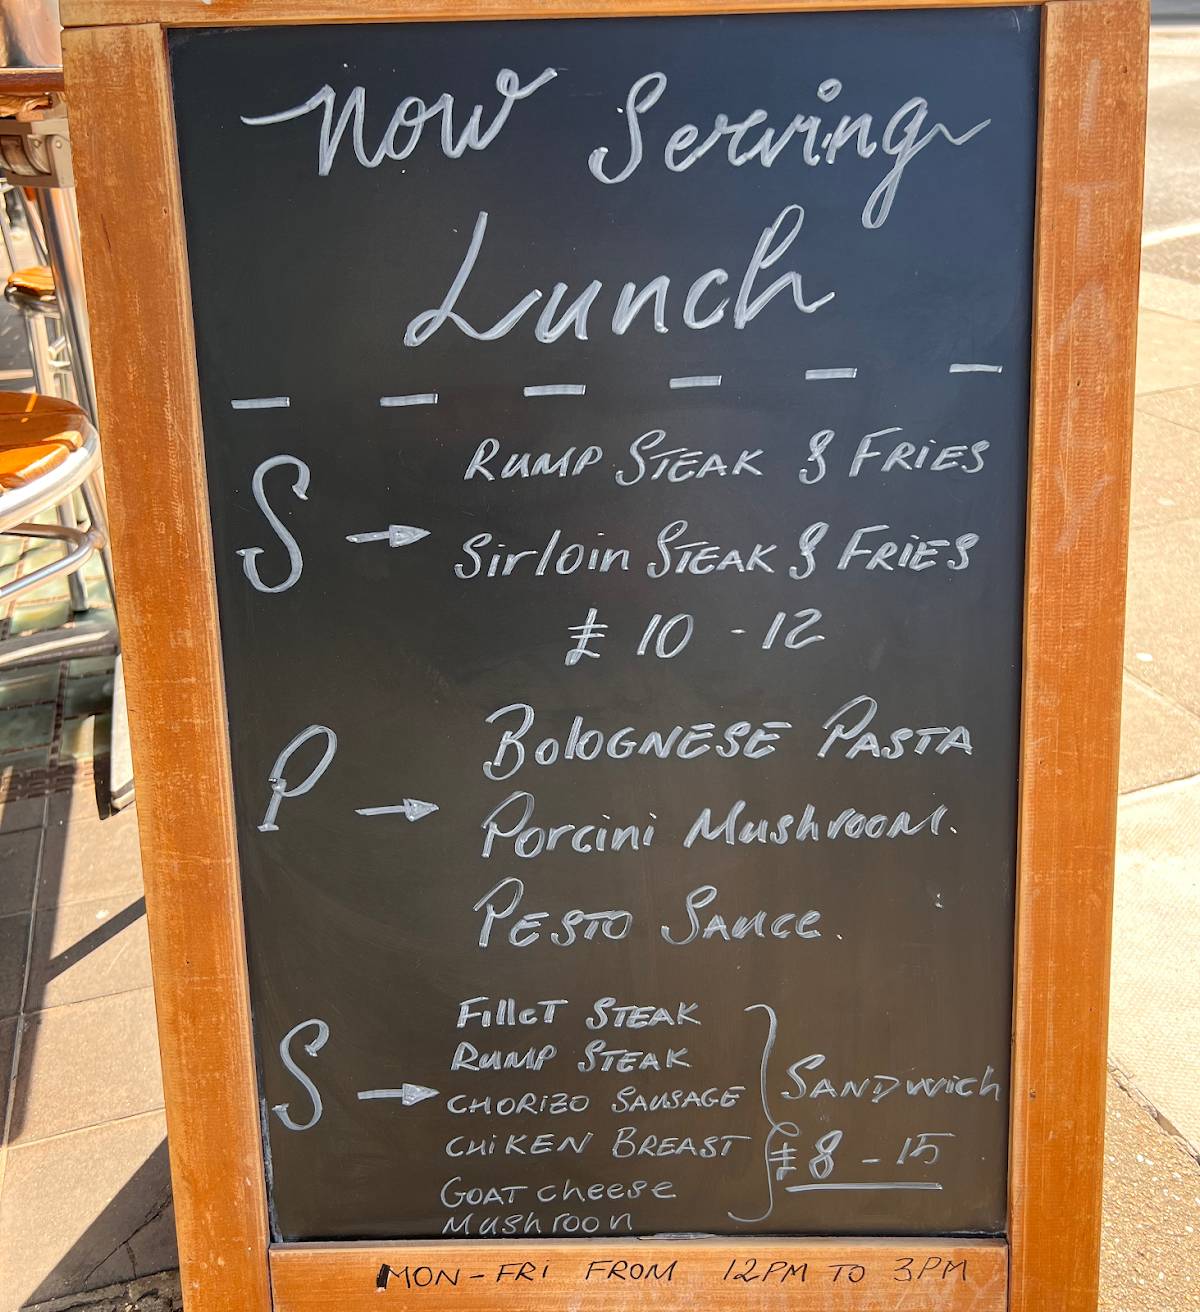 Now Serving
Lunch
S → RUMP STEAK & FRiES
Sirloin STEAK & FRiES
£ 10 - 12
P → BolOGNESE PASTA
Porcini MushrooM.
PESTO SAuce.
S → FilleT STEAK
RUMP STEAK
CHORiZO SAUSAGE
CHiKEN BREAST
GOAT cheese
Mushroon
SANDwich
£8 - 15
MON - FRi FROM 12PM TO 3PM